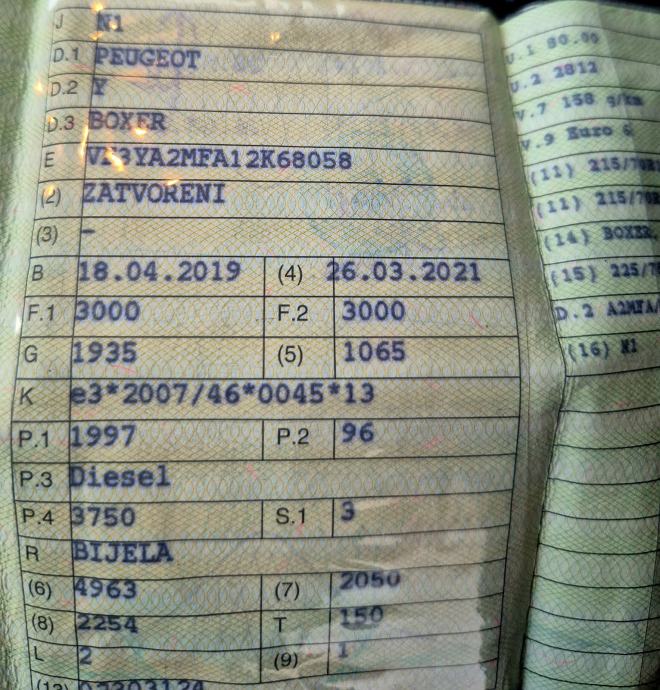 J N1
D.1 PEUGEOT
D.2 Y
D.3 BOXER
E VF3YA2MFA12K68058
(2) ZATVORENI
(3) -
B 18.04.2019 (4) 26.03.2021
F.1 3000 F.2 3000
G 1935 (5) 1065
K e3*2007/46*0045*13
P.1 1997 P.2 96
P.3 Diesel
P.4 3750 S.1 3
R BIJELA
(6) 4963 (7) 2050
(8) 2254 T 150
L 2 (9) 1
U.1 80.00
U.2 2812
V.7 158 g/km
V.9 Euro 6
(11) 215/70R
(11) 215/70R
(14) BOXER,
(15) 225/7
D.2 A2MFA/
(16) N1